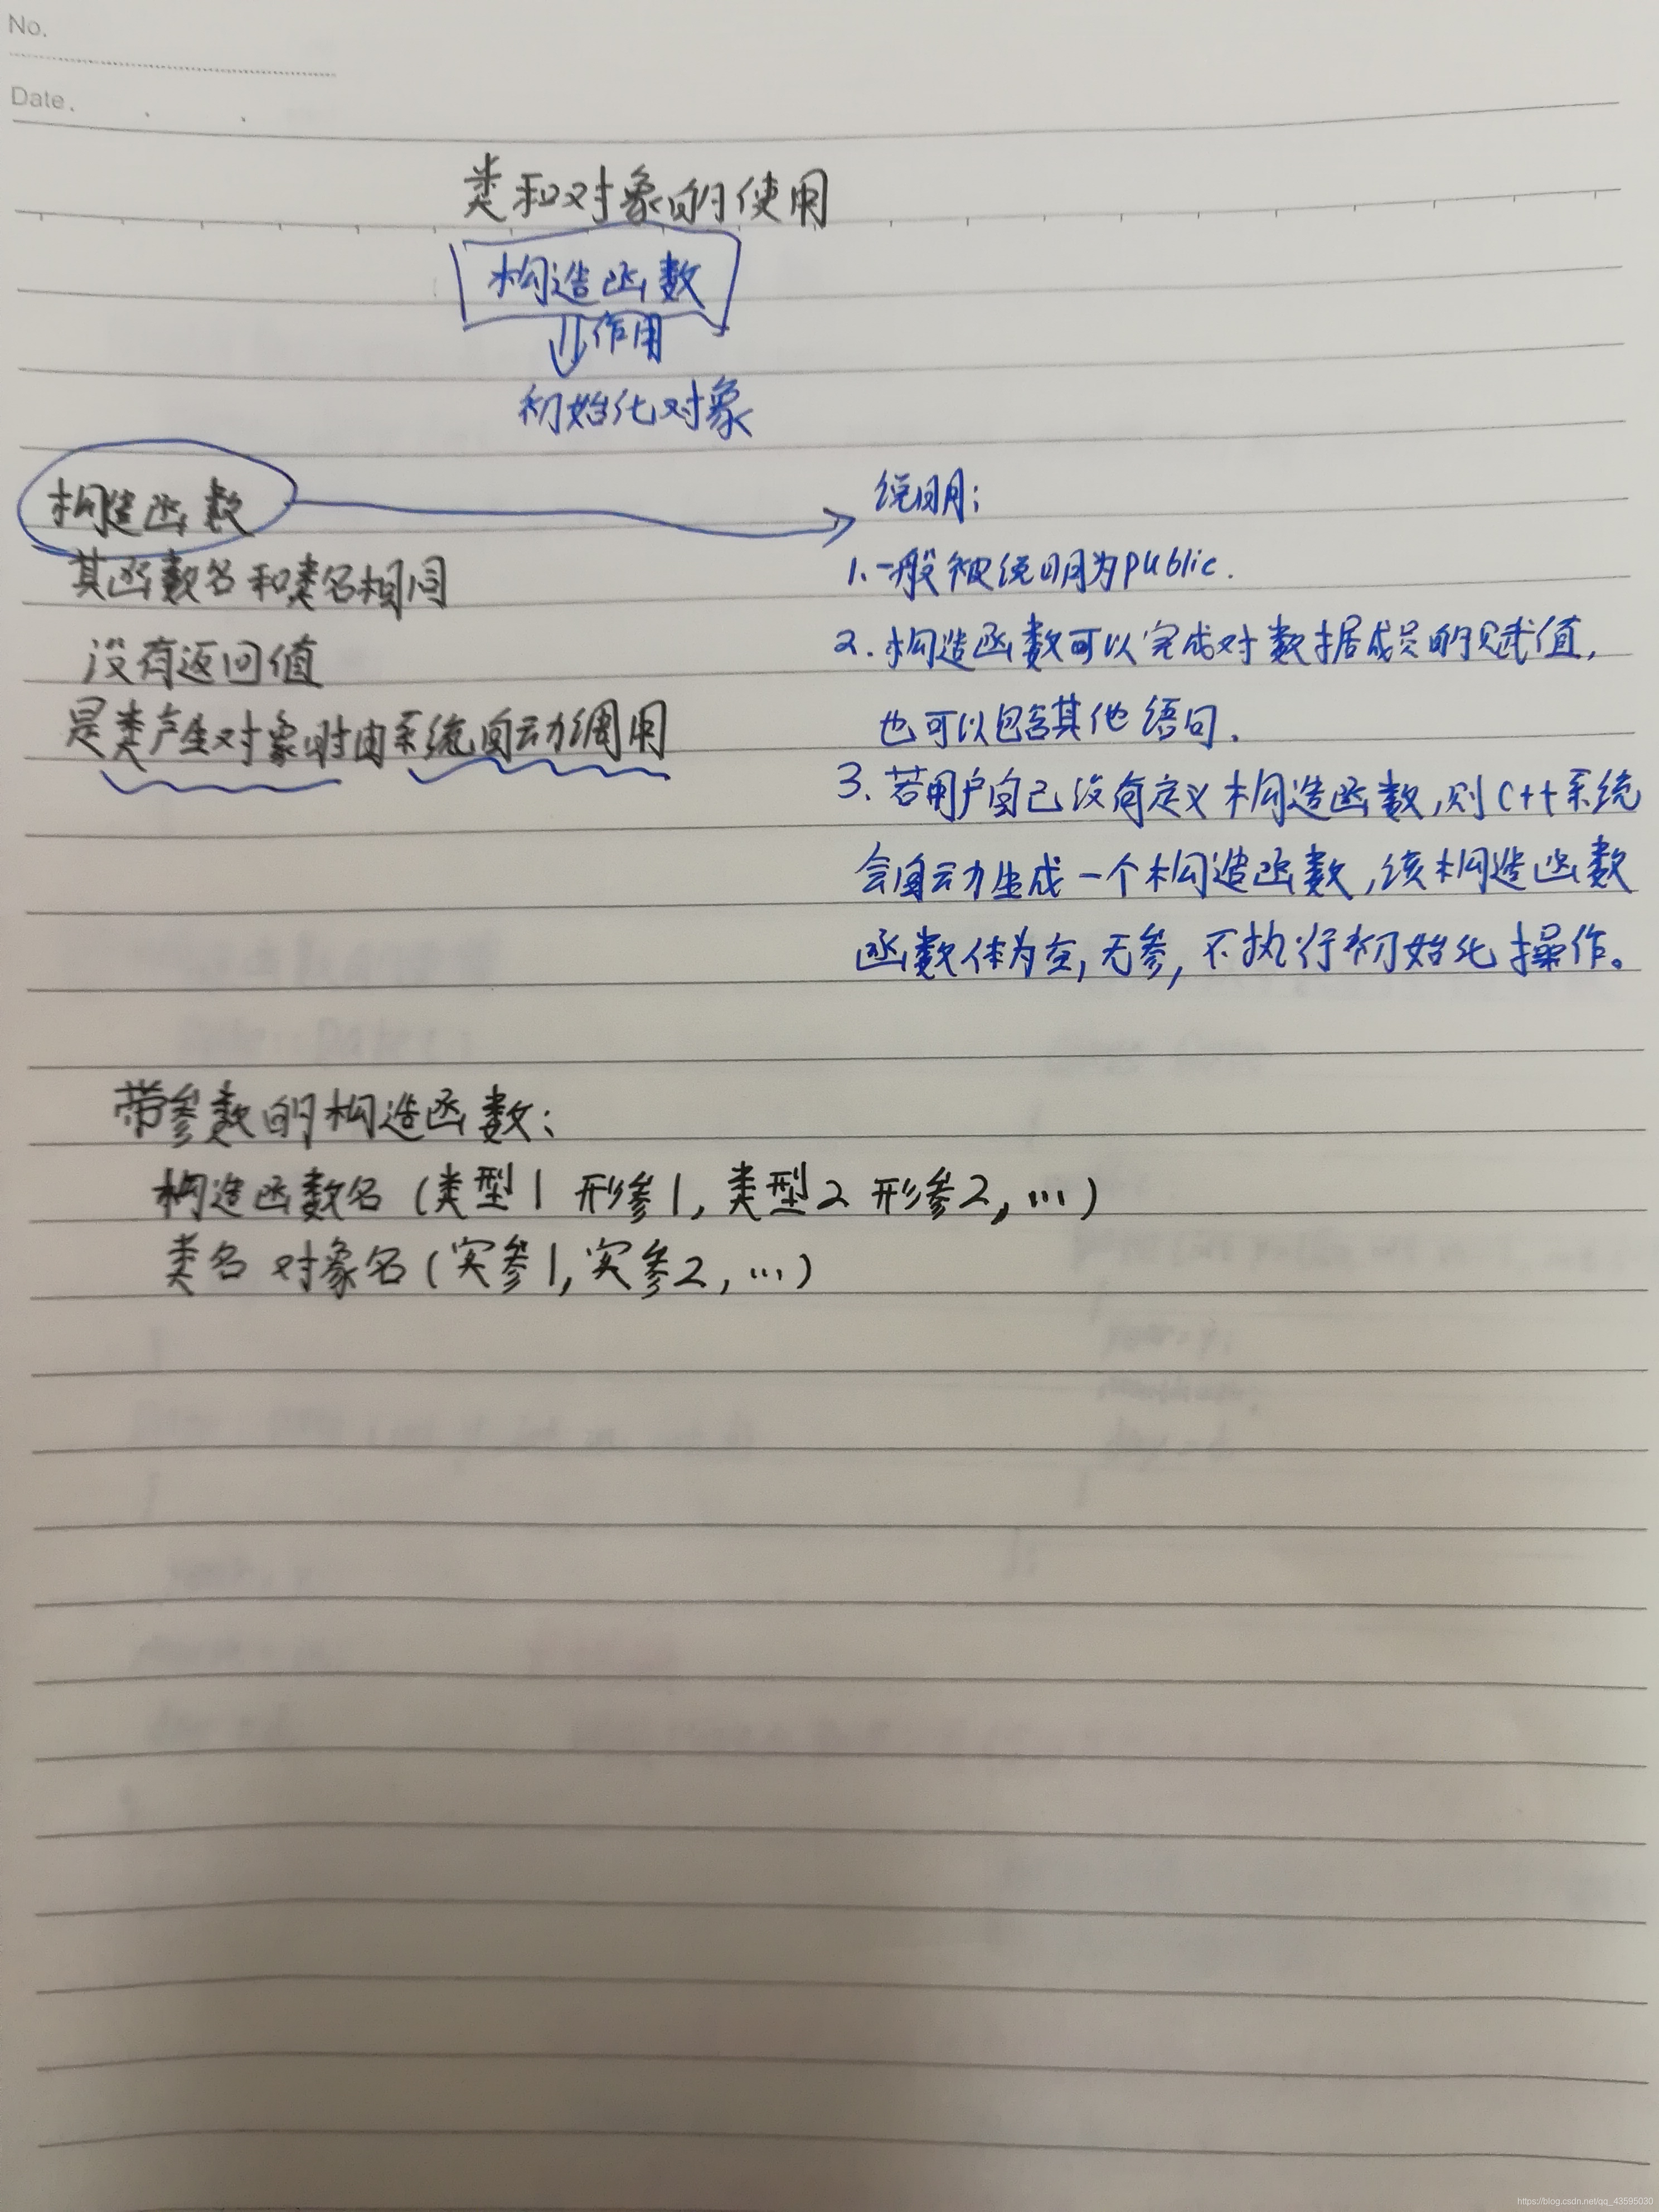 No.
Date.
类和对象的使用
构造函数
作用
初始化对象
构造函数
其函数名和类名相同
没有返回值
是类产生对象时由系统自动调用
说明:
1.一般被说明为public.
2.构造函数可以完成对数据成员的赋值,
也可以包含其他语句.
3.若用户自己没有定义构造函数,则C++系统
会自动生成一个构造函数,该构造函数
函数体为空,无参,不执行初始化操作。
带参数的构造函数:
构造函数名(类型1 形参1,类型2 形参2,…)
类名 对象名(实参1,实参2,…)
https://blog.csdn.net/qq_43595030